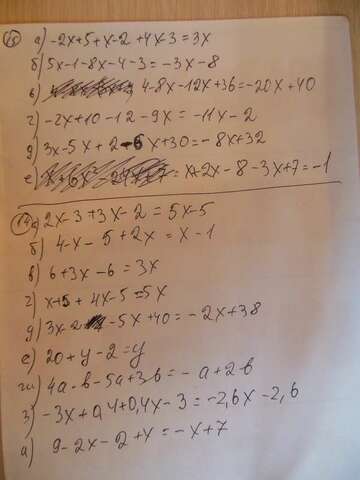 а) -2x+5+x-2+4x-3=3x
б) 5x-1-8x-4-3=-3x-8
в) 4-8x-12x+36=-20x+40
г) -2x+10-12-9x=-11x-2
д) 3x-5x+2-6x+30=-8x+32
е) =x+2x-8-3x+7=-1
а) 2x-3+3x-2=5x-5
б) 4-x-5+2x=x-1
в) 6+3x-6=3x
г) x+5+4x-5=5x
д) 3x-2-5x+40=-2x+38
е) 20+y-2=y
ж) 4a-b-5a+3b=-a+2b
з) -3x+0,4+0,4x-3=-2,6x-2,6
и) 9-2x-2+x=-x+7